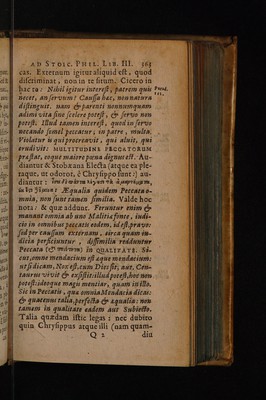 AD STOIC. PHIL. LIB. III. 363
cat. Externum igitur aliquid est, quod
discriminat, non in se situm. Cicero in
hac re: Nihil igitur interest, patrem quis
necet, an servum? Caussa hæc, non natura
distinguit. nam & parenti nonnumquam
adimi vita sine scelere potest, & servo non
potest. Illud tamen interest, quod in servo
necando semel peccatur; in patre, multa.
Violatur is qui procreavit, qui aluit, qui
erudivit: MULTITUDINE PECCATORUM
præstat, eoque maiore pœna dignus est. Au-
diamus & Stobæana Electa (atque ea ple-
raque, ut odoror, è Chrysippo sunt:) au-
diantur:
Æqualia quidem Peccata o-
mnia, non sunt tamen similia. Valde hoc
nota: & quæ addunt. Feruntur enim &
manant omnia ab uno Malitiæ fonte, iudi-
cio in omnibus peccatis eodem. id est, pravo:
sed per caussam externam, circa quam iu-
dicia perficiuntur, dissimilia redduntur
Peccata in QUALITATE. Si-
cut, omne mendacium est æque mendacium:
ut si dicam, Nox est, cum Dies sit; aut, Cen-
taurus vivit & existit: illud potest, hoc non
potest: ideoque magis mentiar, quam in isto.
Sic in Peccatis, qua omnia Mendacia dicas:
& quatenus talia, perfecta & æqualia: non
tamen in qualitate eadem aut Subiecto.
Talia quædam istic legas: nec dubito
quin Chrysippus atque illi (nam quam-
Q 2 diu